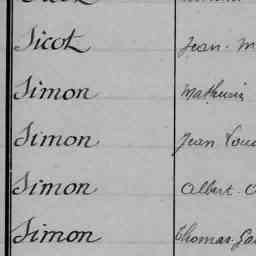 Sicot Jean-M
Simon Mathurin
Simon Jean Lou
Simon Albert
Simon Thomas